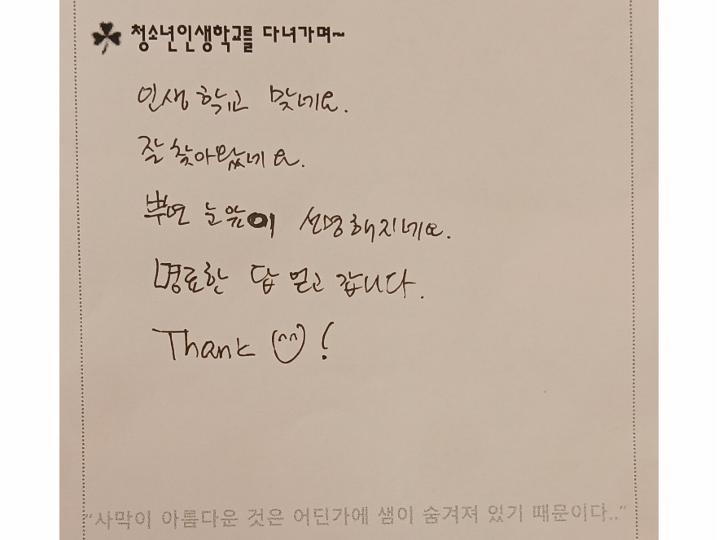 청소년인생학교를 다녀가며~
인생 학교 맞네요.
잘 찾아왔네요.
뿌연 눈앞이 선명해지네요.
명료한 답 얻고 갑니다.
Thank !
"사막이 아름다운 것은 어딘가에 샘이 숨겨져 있기 때문이다.."